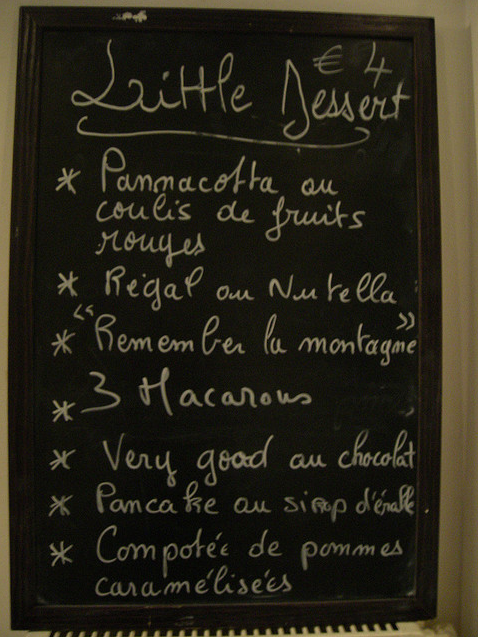 € 4
Little Dessert
* Pannacotta au
coulis de fruits
rouges
* Régal au Nutella
* "Remember la montagne"
* 3 Macarons
* Very good au chocolat
* Pancake au sirop d'érable.
* Compotée de pommes
caramélisées